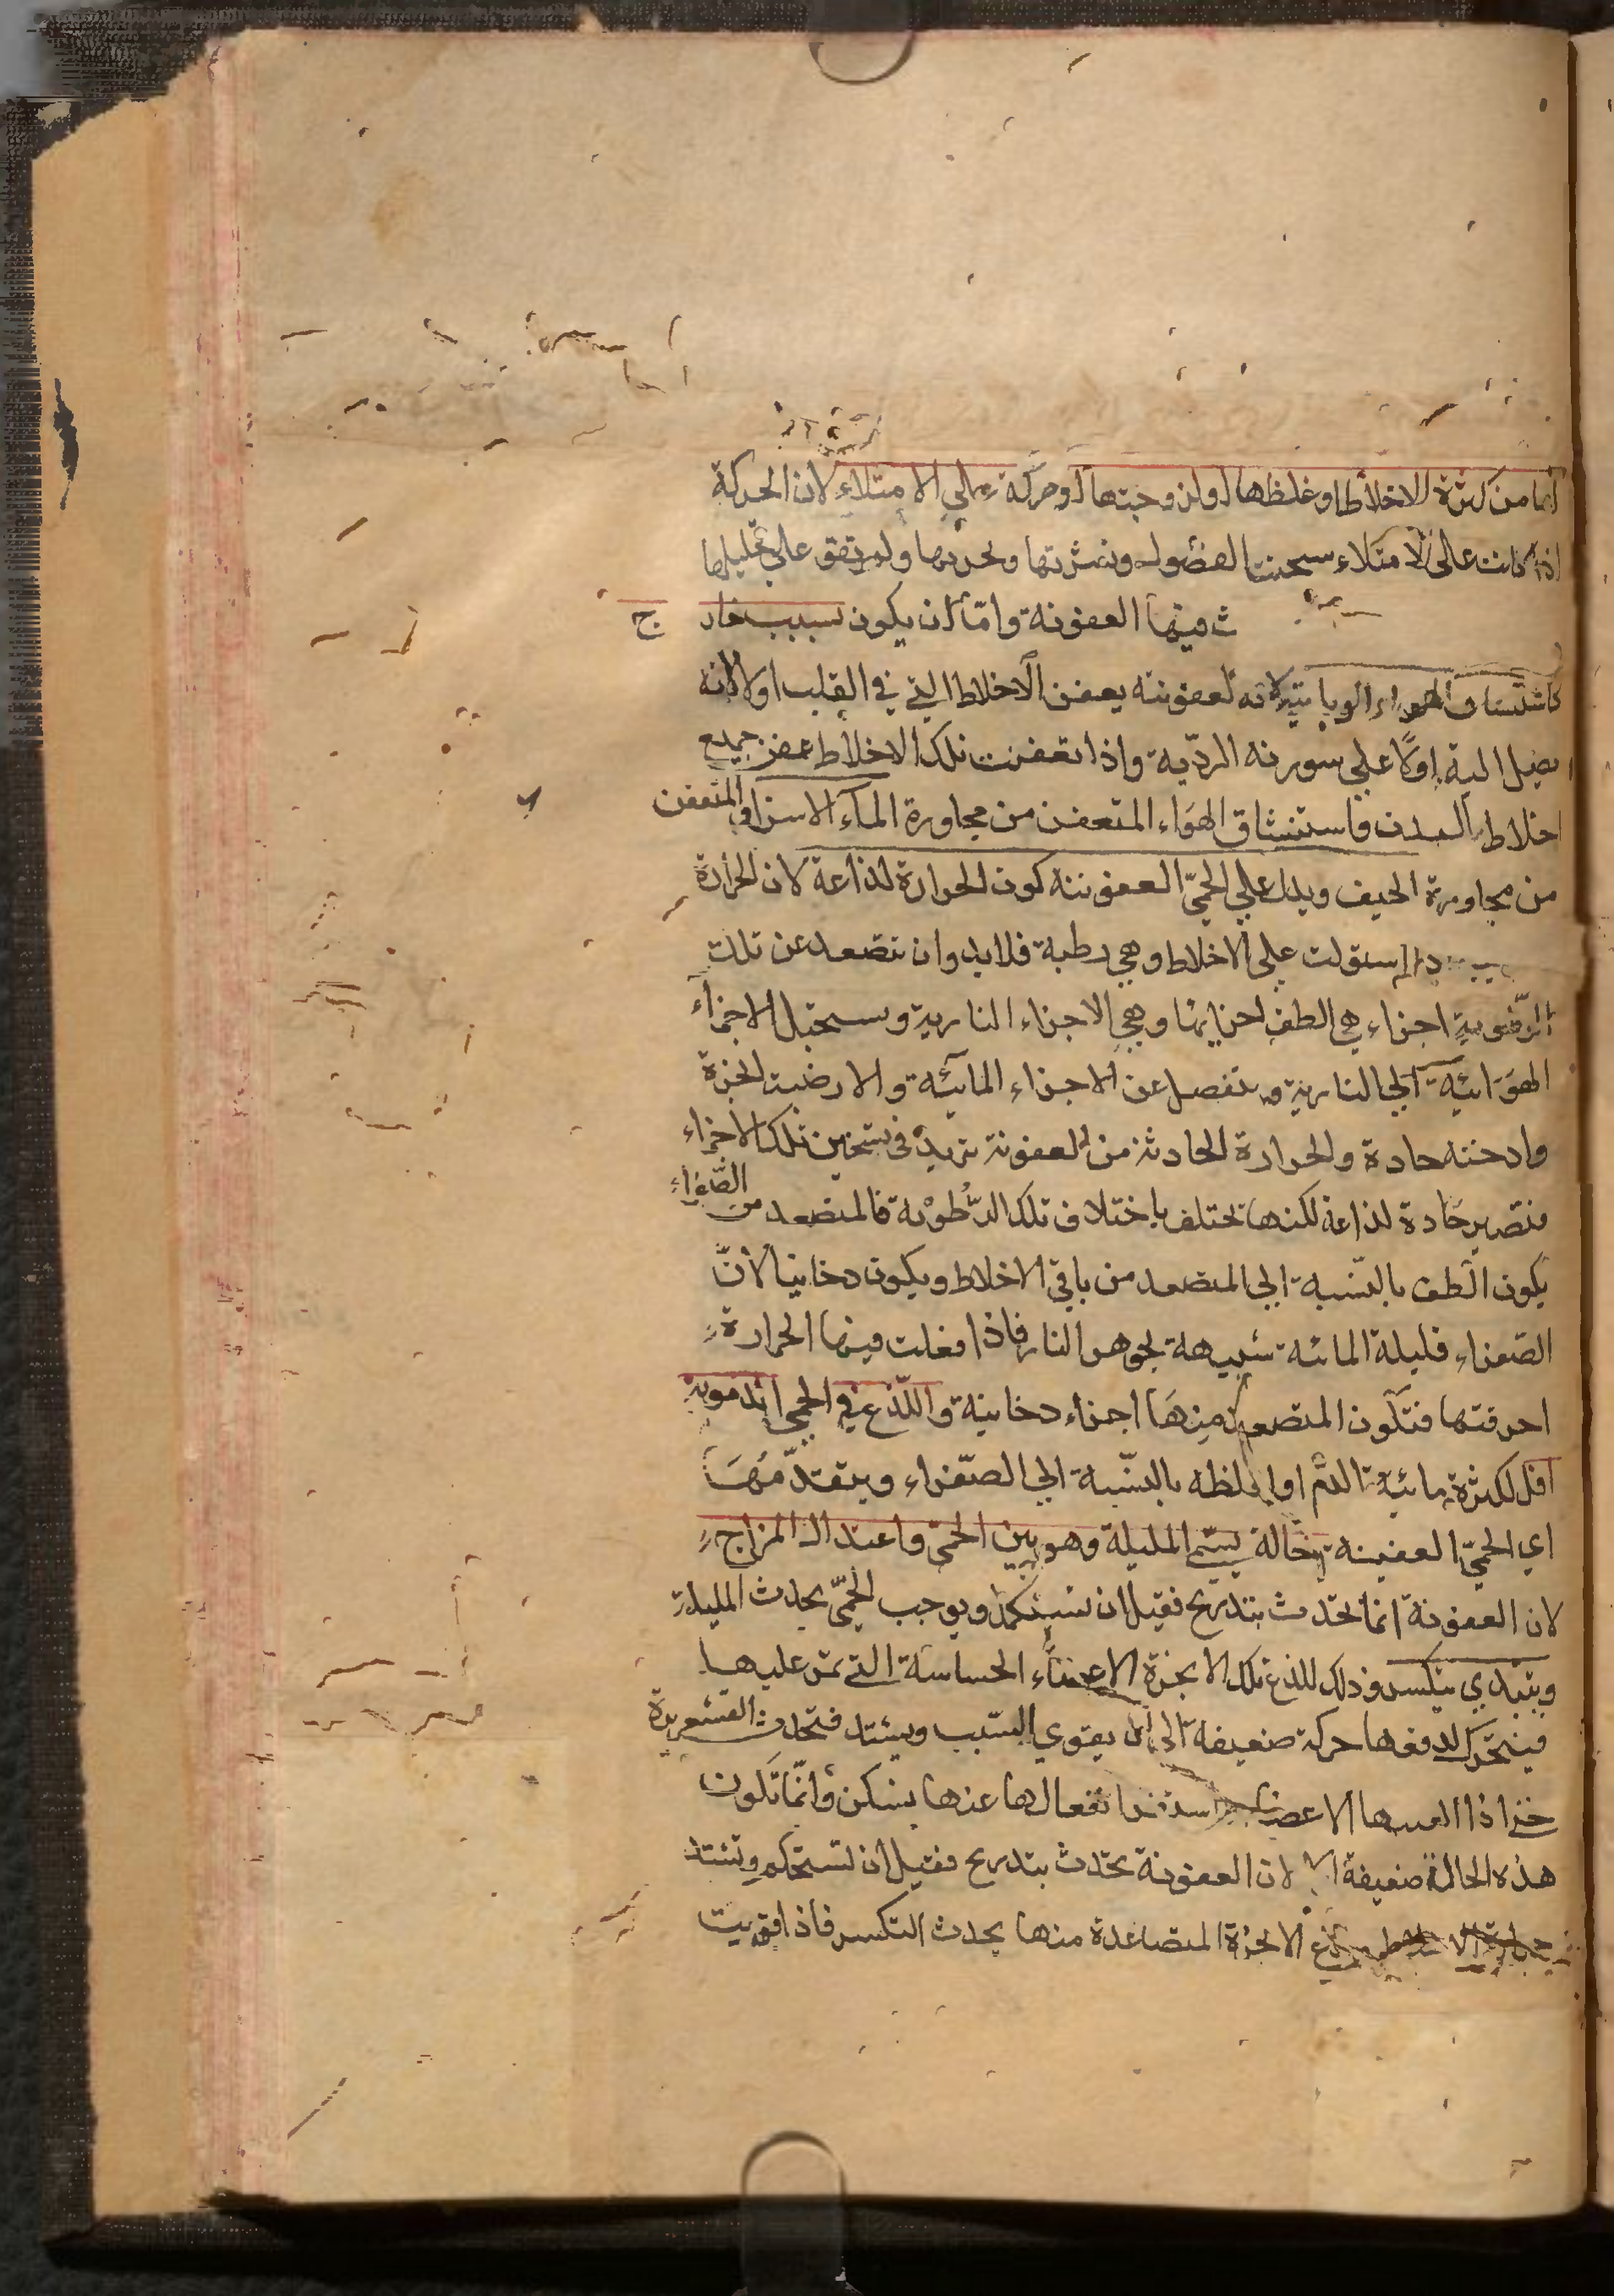 اما من كثرة الاخلاط او غلظها او لزوجتها او حركة علي الامتلاء لان الحركة
اذا كانت علي الامتلاء سخنت الفضول ونشرتها وحركتها ولم تقو علي تحليلها
فيها العفونة واما ان يكون بسبب خارج
كاستنشاق الهواء الوبائي لانه لعفونته يعفن الاخلاط التي في القلب اولا لانه
يصل اليه اولا علي سورته الرديّة واذا تعفنت تلك الاخلاط عفن جميع
اخلاط البدن فاستنشاق الهواء المتعفن من مجاورة الماء المتعفن
من مجاورة الجيف ويدل علي الحمّي العفونته كون الحرارة لذاعة لان الحرارة
استولت علي الاخلاط وهي رطبة فلابد وان تتصعد عن تلك
اجزاء هي الطف اجزائها وهي الاجزاء النارية وستحيل الاجزاء
الهوائية الي النارية وتنفصل عن الاجزاء المائية والارضية ابخرة
وادخنة حادة والحرارة الحادثة من العفونة تزيد في تسخين تلك الاجزاء
فتصير حادة لذاعة لكنها تختلف باختلاف تلك الرُّطوْبة فالمتصعد من الصّفراء
يكون الطف بالنّسبة الي المتصعد من باقي الاخلاط ويكون دخانيا لأنّ
الصّفراء قليلة المائية شبيهة بجوهر النار فاذا فعلت فيها الحرارة
احرقتها فتكون المتصعد منهَا اجزاء دخانية واللّذع في الحمي الدموية
اقل لكثرة مائية الدّم او لغلظه بالنّسبة الي الصّفراء ويتقدّمُهَا
اي الحمّي العفينة حالة يسمّي المليلة وهو بين الحمّي واعتدال المزاج
لان العفونة انما تحدث بتدريج فقبل ان تستحكم ويوجب الحمّي يحدث المليلة
ويبتدي بتكسر وذلك للذع تلك الابخرة الاعضاء الحساسة التي تمر عليها
فيتحرك لدفعها حركة ضعيفة الي ان يقوي السّبب ويشتد فتحدث القشعريرة
حتي اذا الفها الاعضاء انفعالها عنها يسكن وانّما تكون
هذه الحالة ضعيفة لان العفونة تحدث بتدريج فقبل ان تستحكم وتشتد
الابخرة المتصاعدة منها يحدث التكسر فاذا قويت